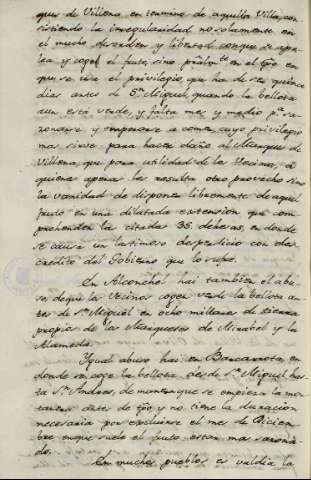 ques de Villena, en termino de aquella Villa, con
sistiendo la irregularidad no solamente en
el mucho desorden y libertad con que se apa
lea y coge el fruto, sino pralm.te en el tpo en
que se usa el privilegio, que ha de ser quince
dias antes de S.n Miguel, quando la bellota
aun está verde, y falta mes y medio p.a sa
zonarse, y empezarse a comer, cuyo privilegio
mas sirve para hacer daño al Marques de
Villena, que para utilidad de los Vecinos, á
quienes apenas les resulta otro provecho sino
la vanidad de disponer libremente de aquel
fruto en una dilatada extensión que com
prehenden las citadas 35. dehesas, en donde
se causa un lastimoso desperdicio con des
credito del Gobierno que lo supo.
En Alconchel hai tambien el abu
so de que los Vecinos cogen verde la bellota an
tes de S.n Miguel en ocho millares de tierra
propios de los Marqueses de Mirabel y la
Alameda.
Ygual abuso hai en Barcarrota en
donde se coge la bellota desde S.n Miguel has
ta S.n Andres, de manera que se empieza la mon
tanera antes de tpo, y no tiene la duracion
necesaria por excluirse el mes de Diciem
bre en que suele el fruto estar mas sazona
do.
En muchos pueblos es valdía la